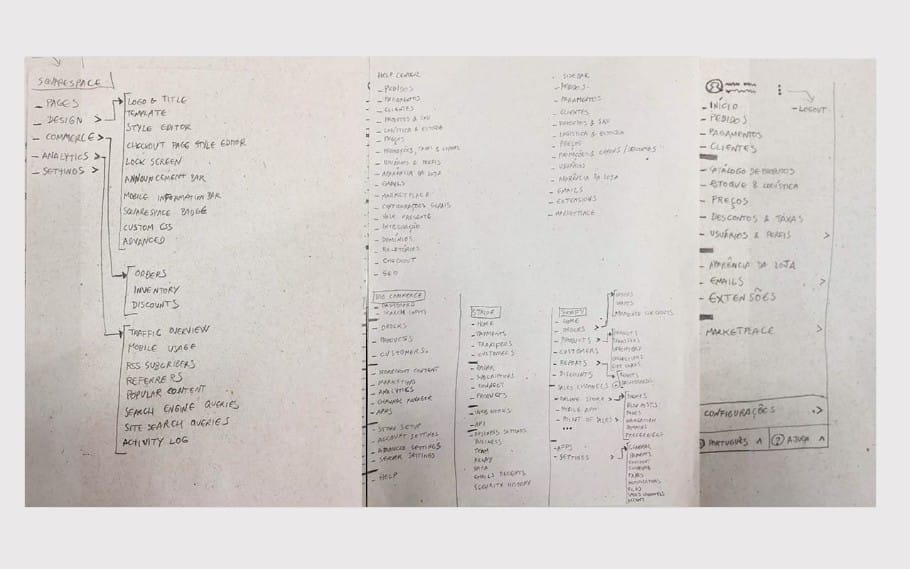 SQUARESPACE
- PAGES
- DESIGN >
- COMMERCE >
- ANALYTICS >
- SETTINGS >
LOGO & TITLE
TEMPLATE
STYLE EDITOR
CHECKOUT PAGE STYLE EDITOR
LOCK SCREEN
ANNOUNCEMENT BAR
MOBILE INFORMATION BAR
SQUARESPACE BADGE
CUSTOM CSS
ADVANCED
ORDERS
INVENTORY
DISCOUNTS
TRAFFIC OVERVIEW
MOBILE USAGE
RSS SUBCRIBERS
REFERRERS
POPULAR CONTENT
SEARCH ENGINE QUERIES
SITE SEARCH QUERIES
ACTIVITY LOG
HELP CENTER
- PEDIDOS
- PAGAMENTOS
- CLIENTES
- LOGÍSTICA & ESTOQUE
- PREÇOS
- USUÁRIOS & PERFIS
- APARÊNCIA DA LOJA
- EMAILS
- MARKETPLACE
- CONFIGURAÇÕES GERAIS
- VALE PRESENTE
- INTEGRAÇÃO
- DOMÍNIOS
- RELATÓRIOS
- CHECKOUT
- SEO
SIDEBAR
- PEDIDOS
- PAGAMENTOS
- CLIENTES
- PRODUTOS & SKU
- LOGÍSTICA & ESTOQUE
- PREÇOS
- USUÁRIOS
- APARÊNCIA DA LOJA
- EMAILS
- EXTENSIONS
- MARKETPLACE
BIG COMMERCE
- DASHBOARD
- ORDERS
- PRODUCTS
- CUSTOMERS
- STOREFRONT CONTENT
- MARKETING
- ANALYTICS
- CHANNEL MANAGER
- APPS
- STORE SETUP
- ACCOUNT SETTINGS
- ADVANCED SETTINGS
- SERVER SETTINGS
- HELP
STRIPE
- HOME
- PAYMENTS
- TRANSFERS
- CUSTOMERS
- RADAR
- SUBSCRIPTIONS
- CONNECT
- PRODUCTS
- WEBHOOKS
- API
- BUSINESS SETTINGS
BUSINESS
TEAM
RELAY
DATA
EMAILS RECEIPTS
SECURITY HISTORY
SHOPIFY
- HOME
- ORDERS >
- PRODUCTS >
- CUSTOMERS
- REPORTS >
- DISCOUNTS
SALES CHANNELS
- ONLINE STORE >
- MOBILE APP
- POINT OF SALES >
...
- APPS
- SETTINGS >
ORDERS
DRAFTS
ABANDONED CHECKOUTS
PRODUCTS
TRANSFERS
INVENTORY
COLLECTIONS
GIFT CARDS
THEMES
BLOG POSTS
PAGES
NAVIGATION
DOMAINS
PREFERENCES
GENERAL
PAYMENTS
CHECKOUT
SHIPPING
TAXES
NOTIFICATIONS
FILES
SALES CHANNELS
ACCOUNT
- LOGOUT
- INÍCIO
- PEDIDOS
- PAGAMENTOS
- CLIENTES
- CATÁLOGO DE PRODUTOS
- ESTOQUE & LOGÍSTICA
- PREÇOS
- DESCONTOS & TAXAS
- USUÁRIOS & PERFIS >
- APARÊNCIA DA LOJA
- EMAILS >
- EXTENSÕES
MARKETPLACE >
CONFIGURAÇÕES >
PORTUGUÊS ^
? AJUDA ^